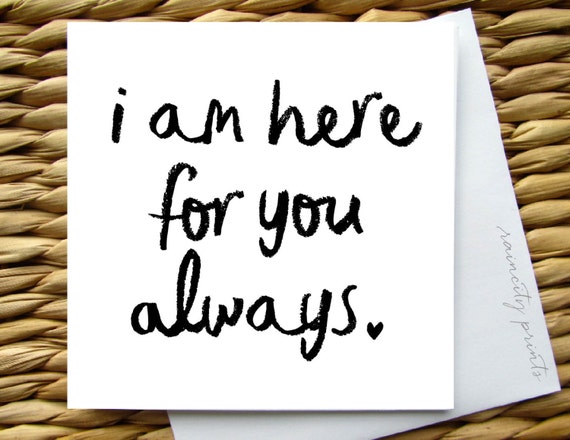 i am here
for you
always.
raincity prints